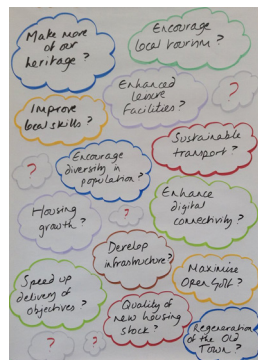 Make more
of our
heritage?
Encourage
local tourism?
Enhanced
Leisure
Facilities?
?
Improve
local skills?
Sustainable
transport?
?
Encourage
diversity in
population?
Enhance
digital
connectivity?
Housing
growth?
?
Develop
infrastructure?
Speed up
delivery of
objectives?
Maximise
Open Golf?
Quality of
new housing
stock?
Regeneration
of the Old
Town?
?
?